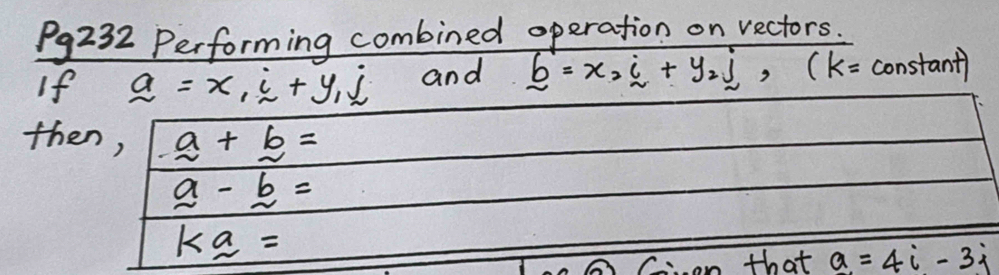 Pg232 Performing combined operation on vectors.
If a̰ = x₁ḭ + y₁j̰ and b̰ = x₂ḭ + y₂j̰ , (k = constant)
then,
a̰ + b̰ =
a̰ - b̰ =
ka̰ =
Given that a̰ = 4i - 3j